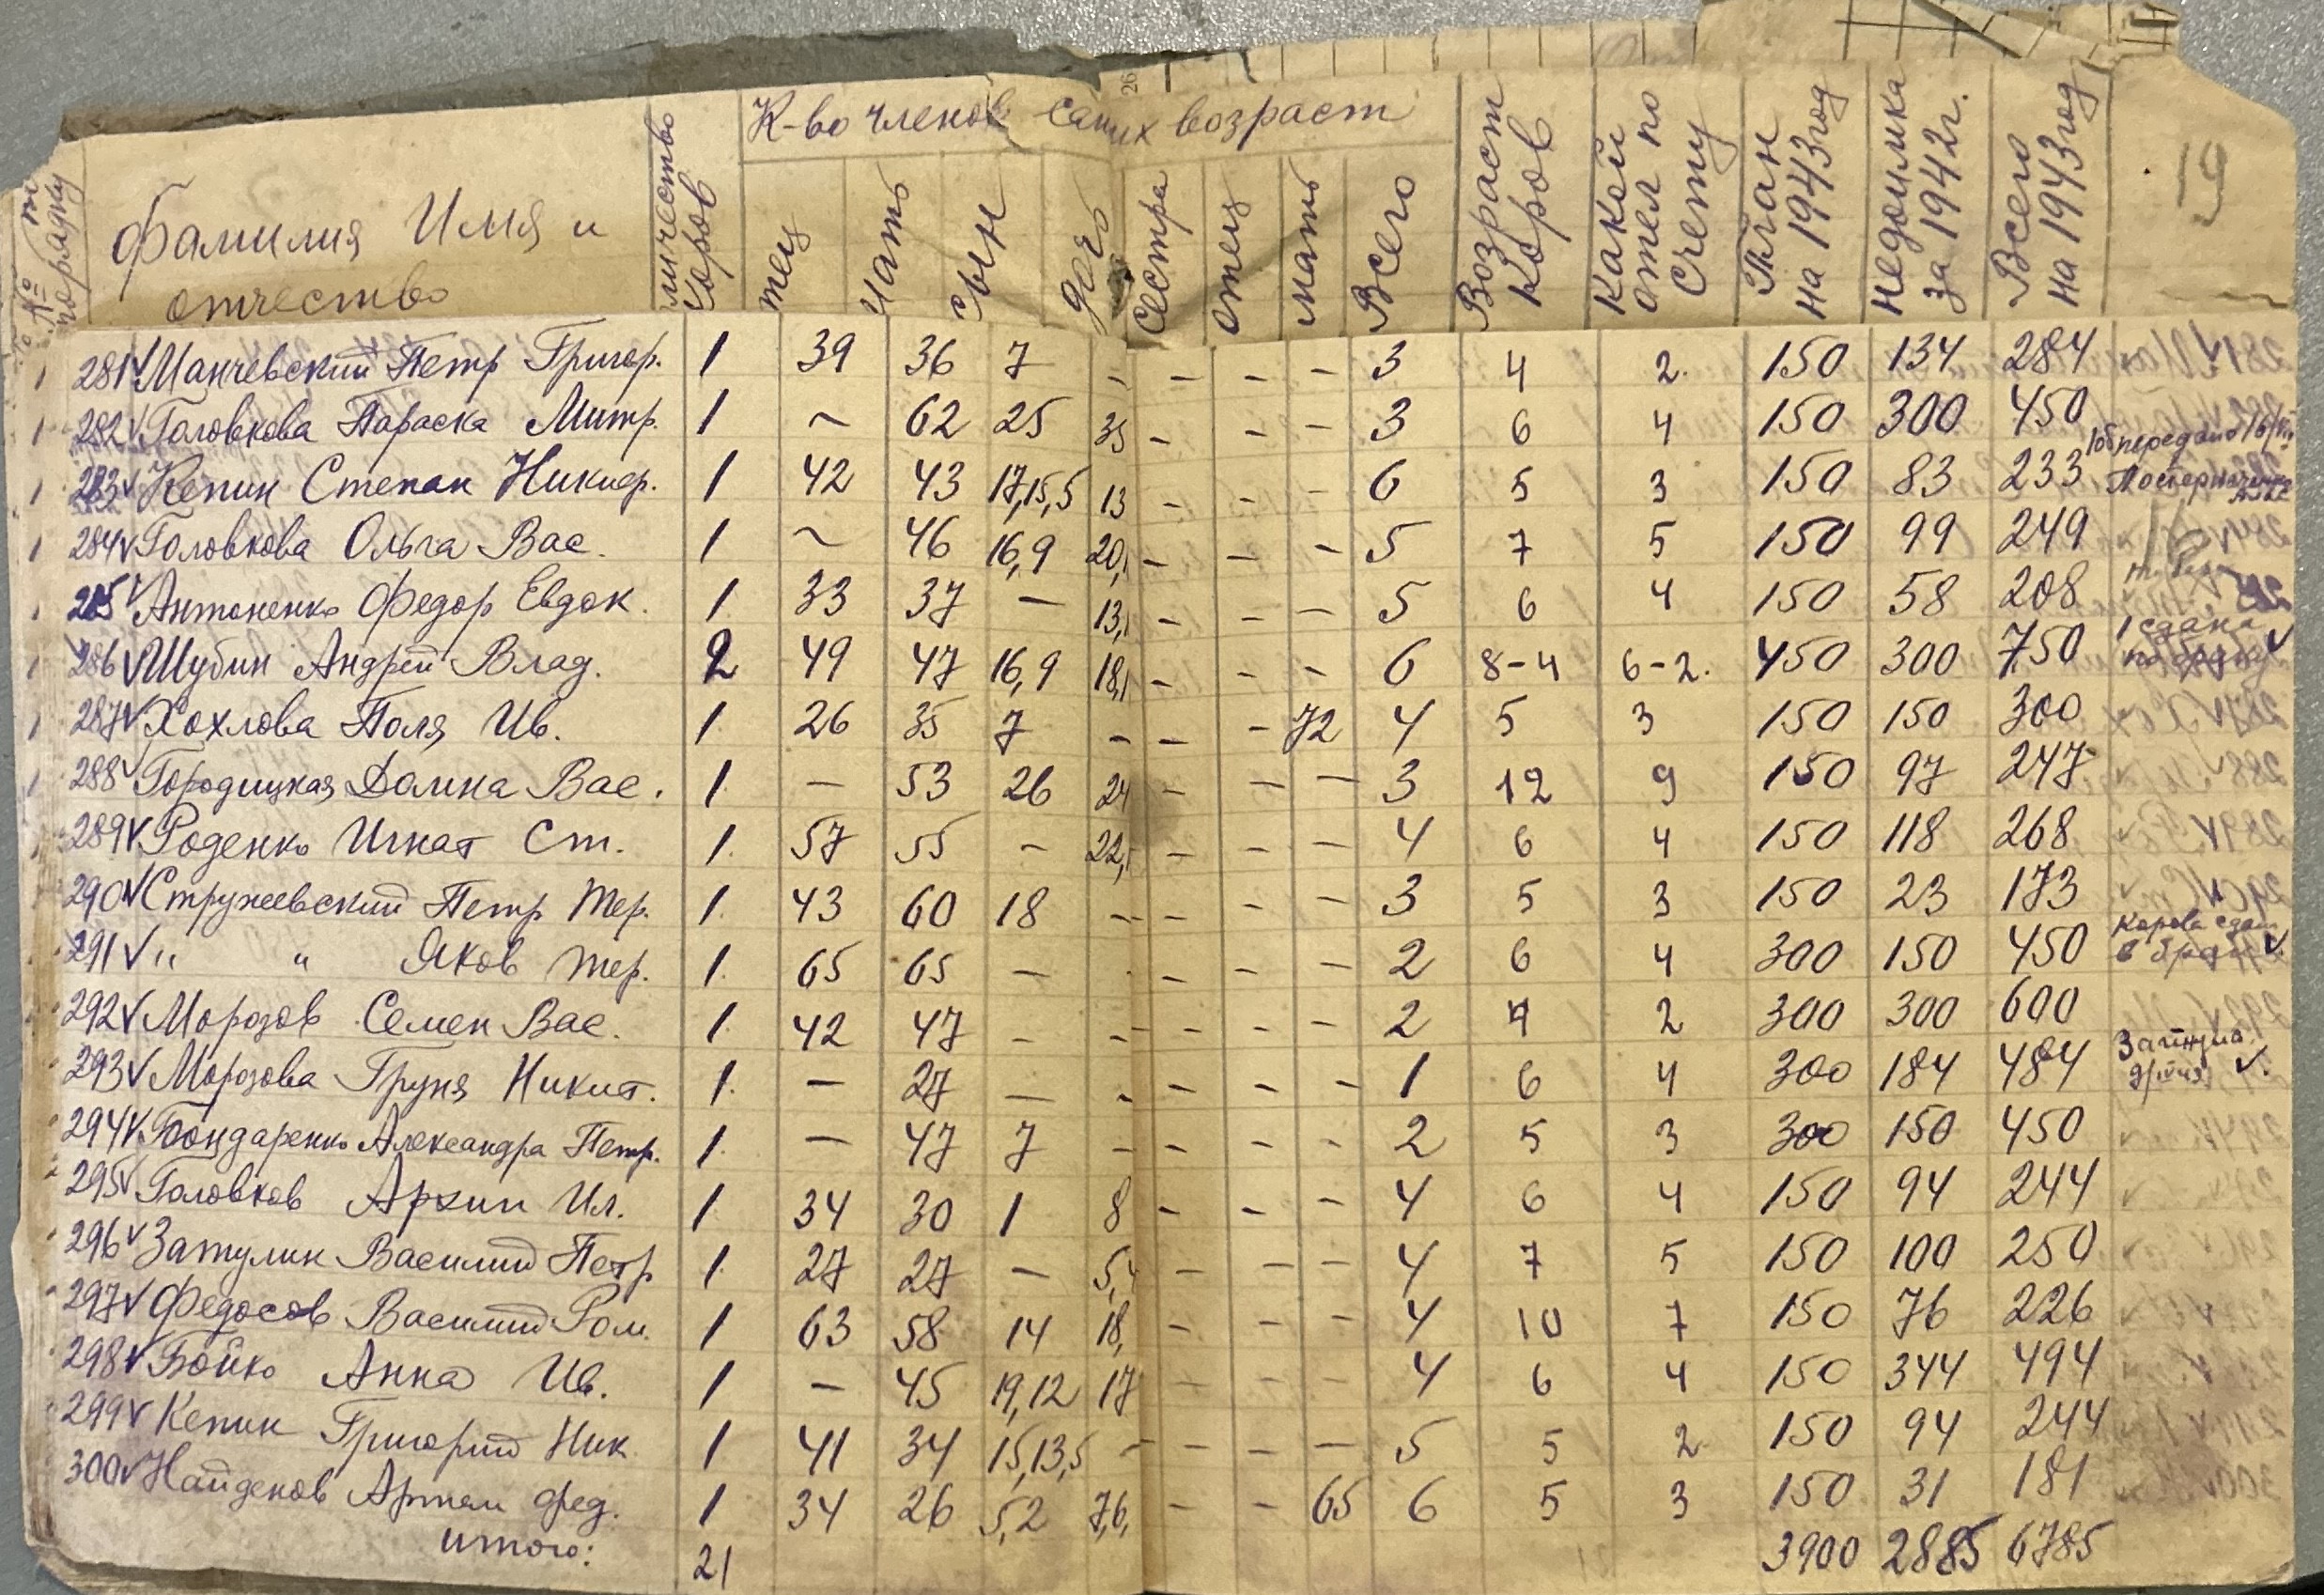 № по порядку
Фамилия Имя и отчество
Количество коров
К-во членов с а их возраст
отец
мать
сын
дочь
сестра
отец
мать
Всего
Возраст коров
Какой отел по счету
План на 1943 год
Недоимка за 1942 г.
Всего на 1943 год
19
26
281 √ Манчевский Петр Григор. 1 39 36 7 - - - - 3 4 2. 150 134 284
282 √ Головкова Параска Митр. 1 ~ 62 25 35 - - - 3 6 4 150 300 450
283 √ Кепин Степан Никиф. 1 42 43 17,15,5 13 - - - 6 5 3 150 83 233 передано
284 √ Головкова Ольга Вас. 1 ~ 46 16,9 20, - - - 5 7 5 150 99 249
285 √ Антоненко Федор Евдок. 1 33 37 - 13, - - - 5 6 4 150 58 208
286 √ Шубин Андрей Влад. 2 49 47 16,9 18, - - - 6 8-4 6-2. 450 300 750 1 сдана √
287 √ Хохлова Поля Ив. 1 26 35 7 - - - 72 4 5 3 150 150 300
288 √ Городицкая Домна Вас. 1 - 53 26 24 - - - 3 12 9 150 97 247
289 √ Роденко Игнат Ст. 1 57 55 - 22, - - - 4 6 4 150 118 268
290 √ Стружевский Петр Тер. 1 43 60 18 - - - - 3 5 3 150 23 173
291 √ " " Яков Тер. 1 65 65 - - - - 2 6 4 300 150 450 Корова сдан в √
292 √ Морозов Семен Вас. 1 42 47 - - - - - 2 4 2 300 300 600
293 √ Морозова Груня Никит. 1 - 27 - - - - - 1 6 4 300 184 484 √
294 √ Бондаренко Александра Петр. 1 - 47 7 - - - - 2 5 3 300 150 450
295 √ Головков Архип Ил. 1 34 30 1 8 - - - 4 6 4 150 94 244
296 √ Затулин Василий Петр 1 27 27 - 5, - - - 4 7 5 150 100 250
297 √ Федосов Василий Ром. 1 63 58 14 18, - - - 4 10 7 150 76 226
298 √ Бойко Анна Ив. 1 - 45 19,12 17 - - - 4 6 4 150 344 494
299 √ Кепин Григорий Ник 1 41 34 15,13,5 - - - - 5 5 2 150 94 244
300 √ Найденов Артем Фед. 1 34 26 5,2 7,6, - - 65 6 5 3 150 31 181
итого: 21 3900 2885 6785